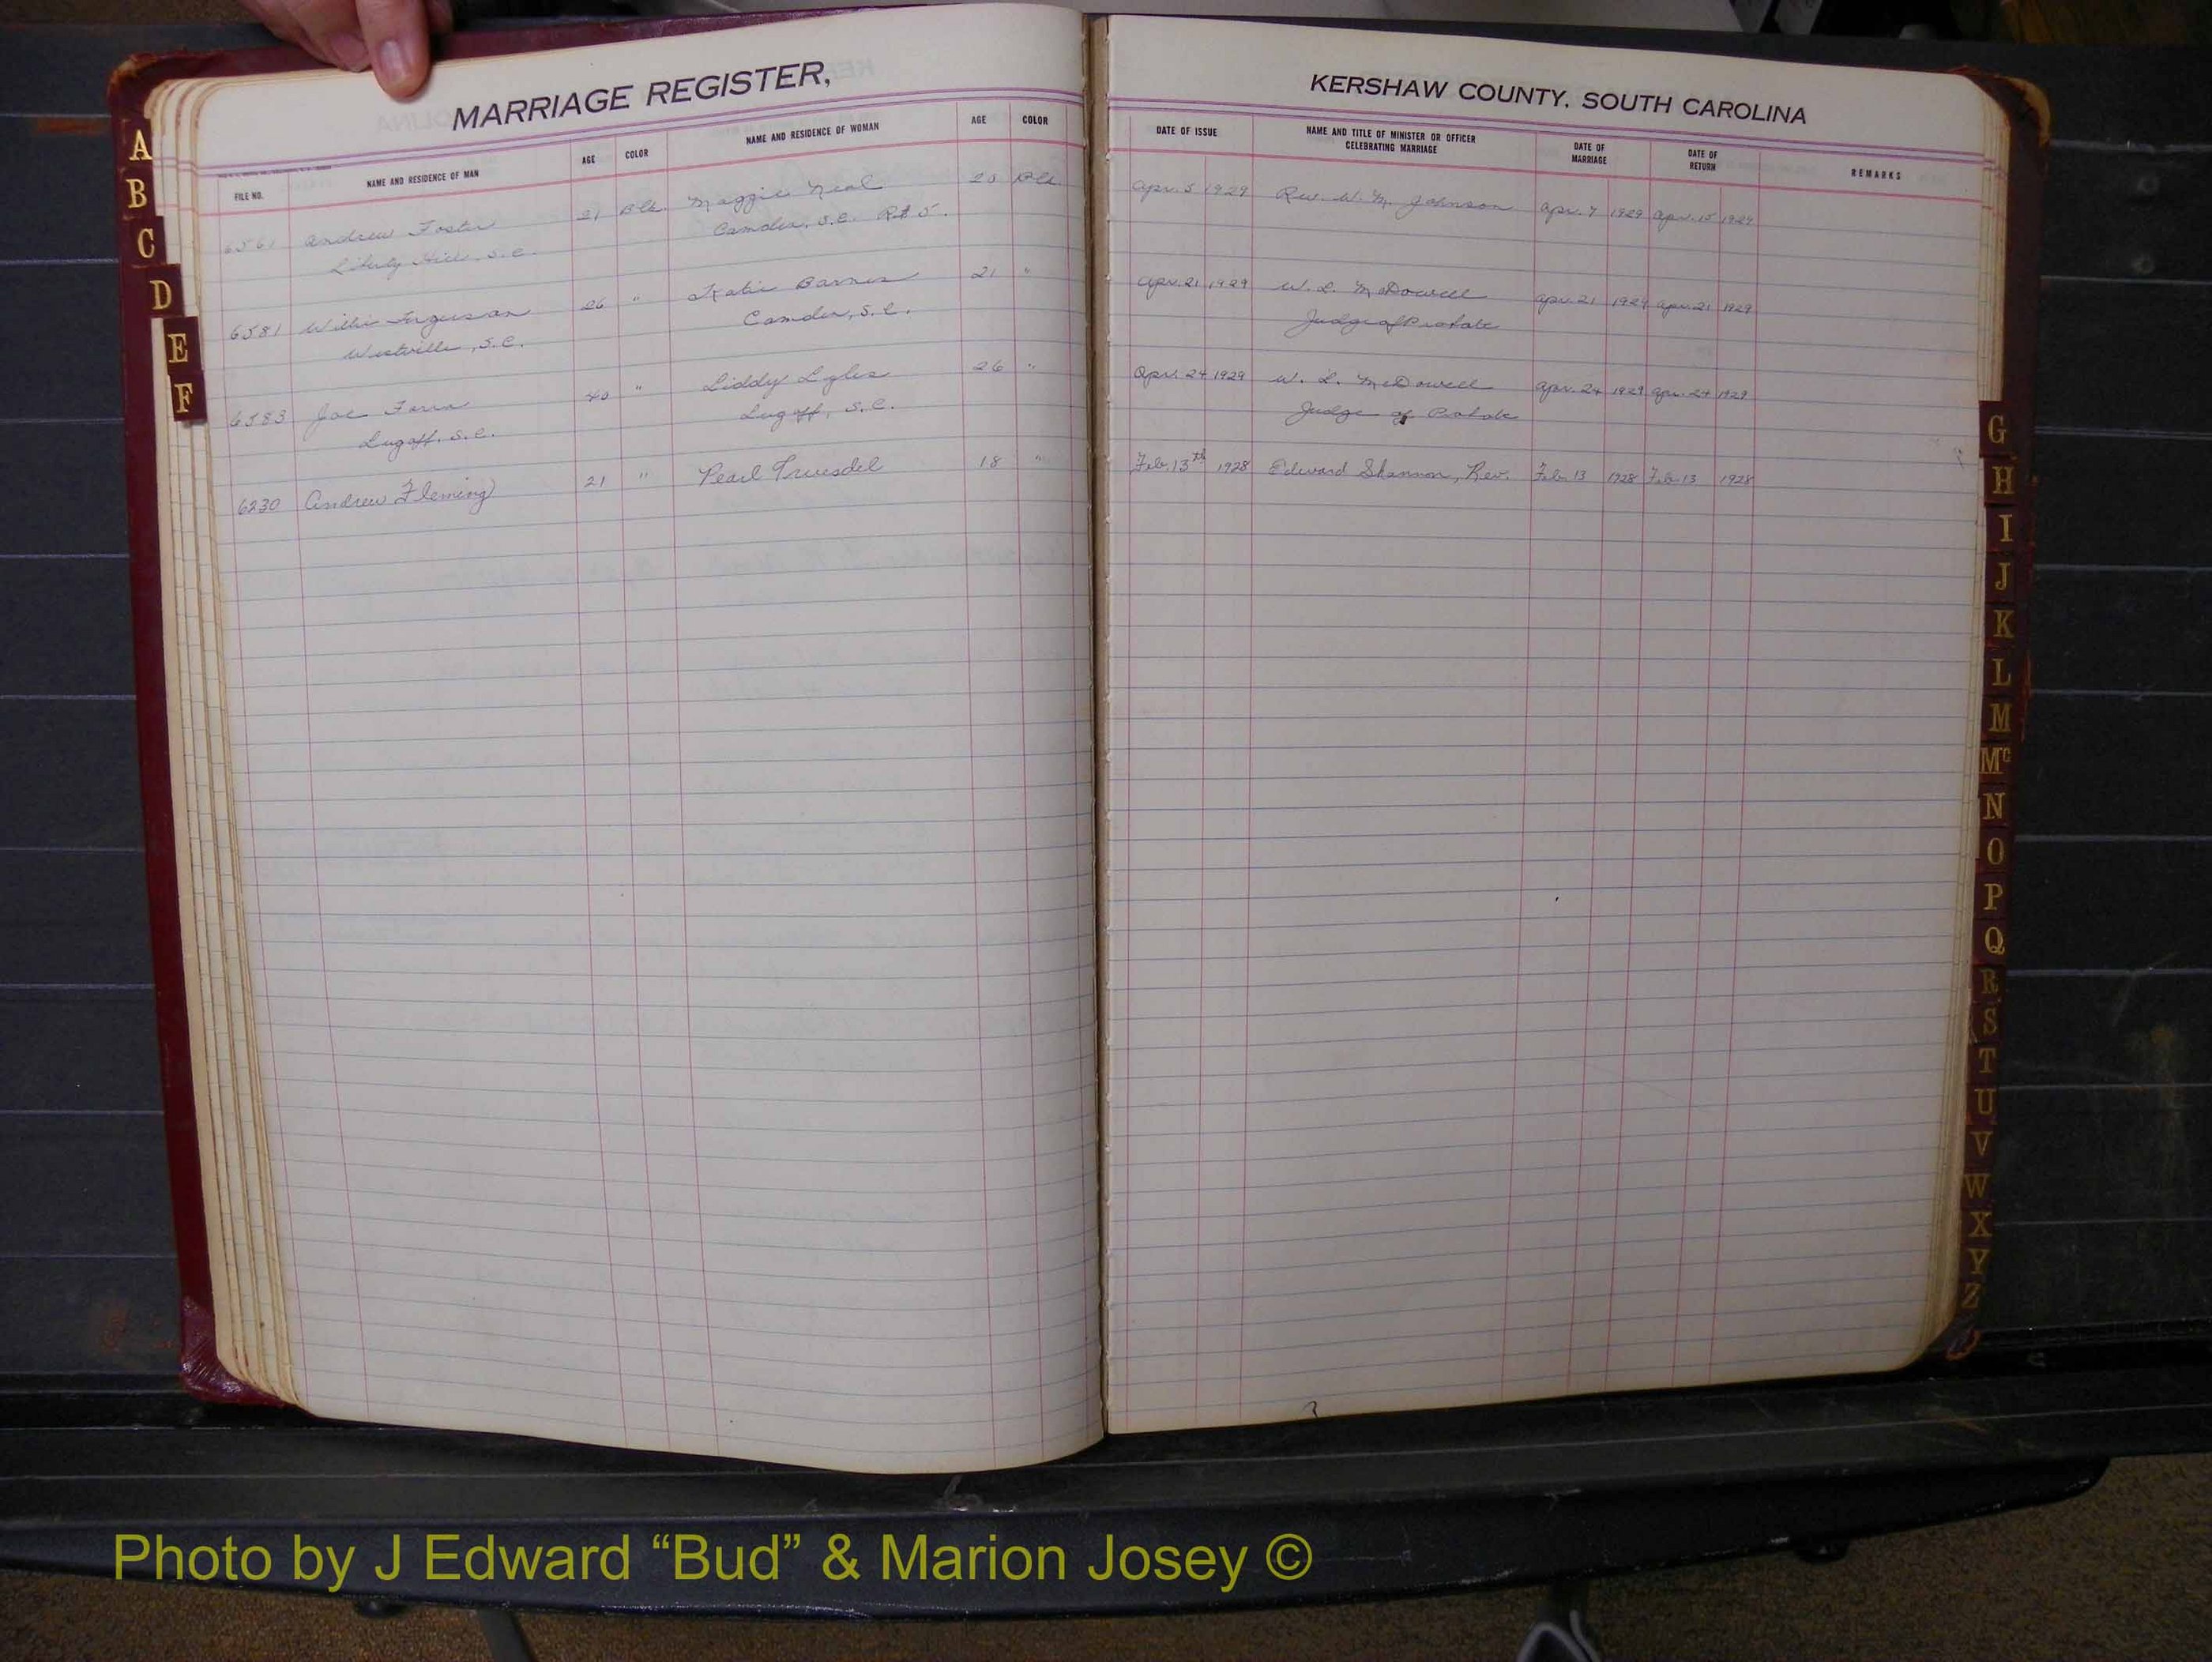 MARRIAGE REGISTER,
FILE NO. NAME AND RESIDENCE OF MAN AGE COLOR NAME AND RESIDENCE OF WOMAN AGE COLOR
Andrew Foster 21 Blk. Maggie Neal Blk.
Liberty Hill, S.C. Camden, S.C. Rt. 5.
6581 Willie Ferguson 26 " Katie Barnes 21 "
Westville, S.C. Camden, S.C.
6583 Joe 40 " Liddy Lyles 26 "
Lugoff, S.C. Lugoff, S.C.
6230 Andrew Fleming 21 " Pearl Truesdel 18 "
KERSHAW COUNTY, SOUTH CAROLINA
DATE OF ISSUE NAME AND TITLE OF MINISTER OR OFFICER CELEBRATING MARRIAGE DATE OF MARRIAGE DATE OF RETURN REMARKS
Apr. 5 1929 Rev. W. M. Johnson Apr. 7 1929 Apr. 15 1929
Apr. 21 1929 W. L. McDowell Apr. 21 1929 Apr. 21 1929
Judge of Probate
Apr. 24 1929 W. L. McDowell Apr. 24 1929 Apr. 24 1929
Judge of Probate
Feb. 13th 1928 Edward Shannon, Rev. Feb. 13 1928 Feb. 13 1928
A
B
C
D
E
F
G
H
I
J
K
L
M
Mc
N
O
P
Q
R
S
T
U
V
W
X
Y
Z
Photo by J Edward “Bud” & Marion Josey ©